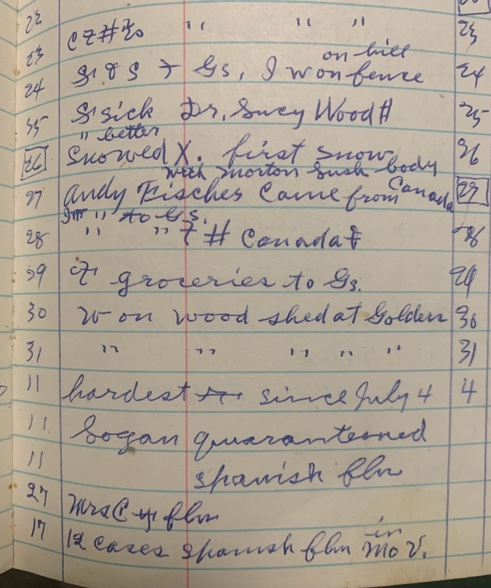 22 " " " 23
23 on hill
24 G1 & S & Gs, I w on fence 24
25 S sick Dr. Lucy Wood H 25
" better
26 Snowed X. first snow 26
with Morton Lush body
27 Andy Fisches came from Canada 27
" to Gs.
28 " " # Canada 28
29 groceries to Gs. 29
30 w on wood shed at Golden 30
31 " " " " " 31
11 hardest since July 4 4
11 Logan quaranteened
11 spanish flu
27 Mrs C flu
17 12 cases spanish flu in Mo V.